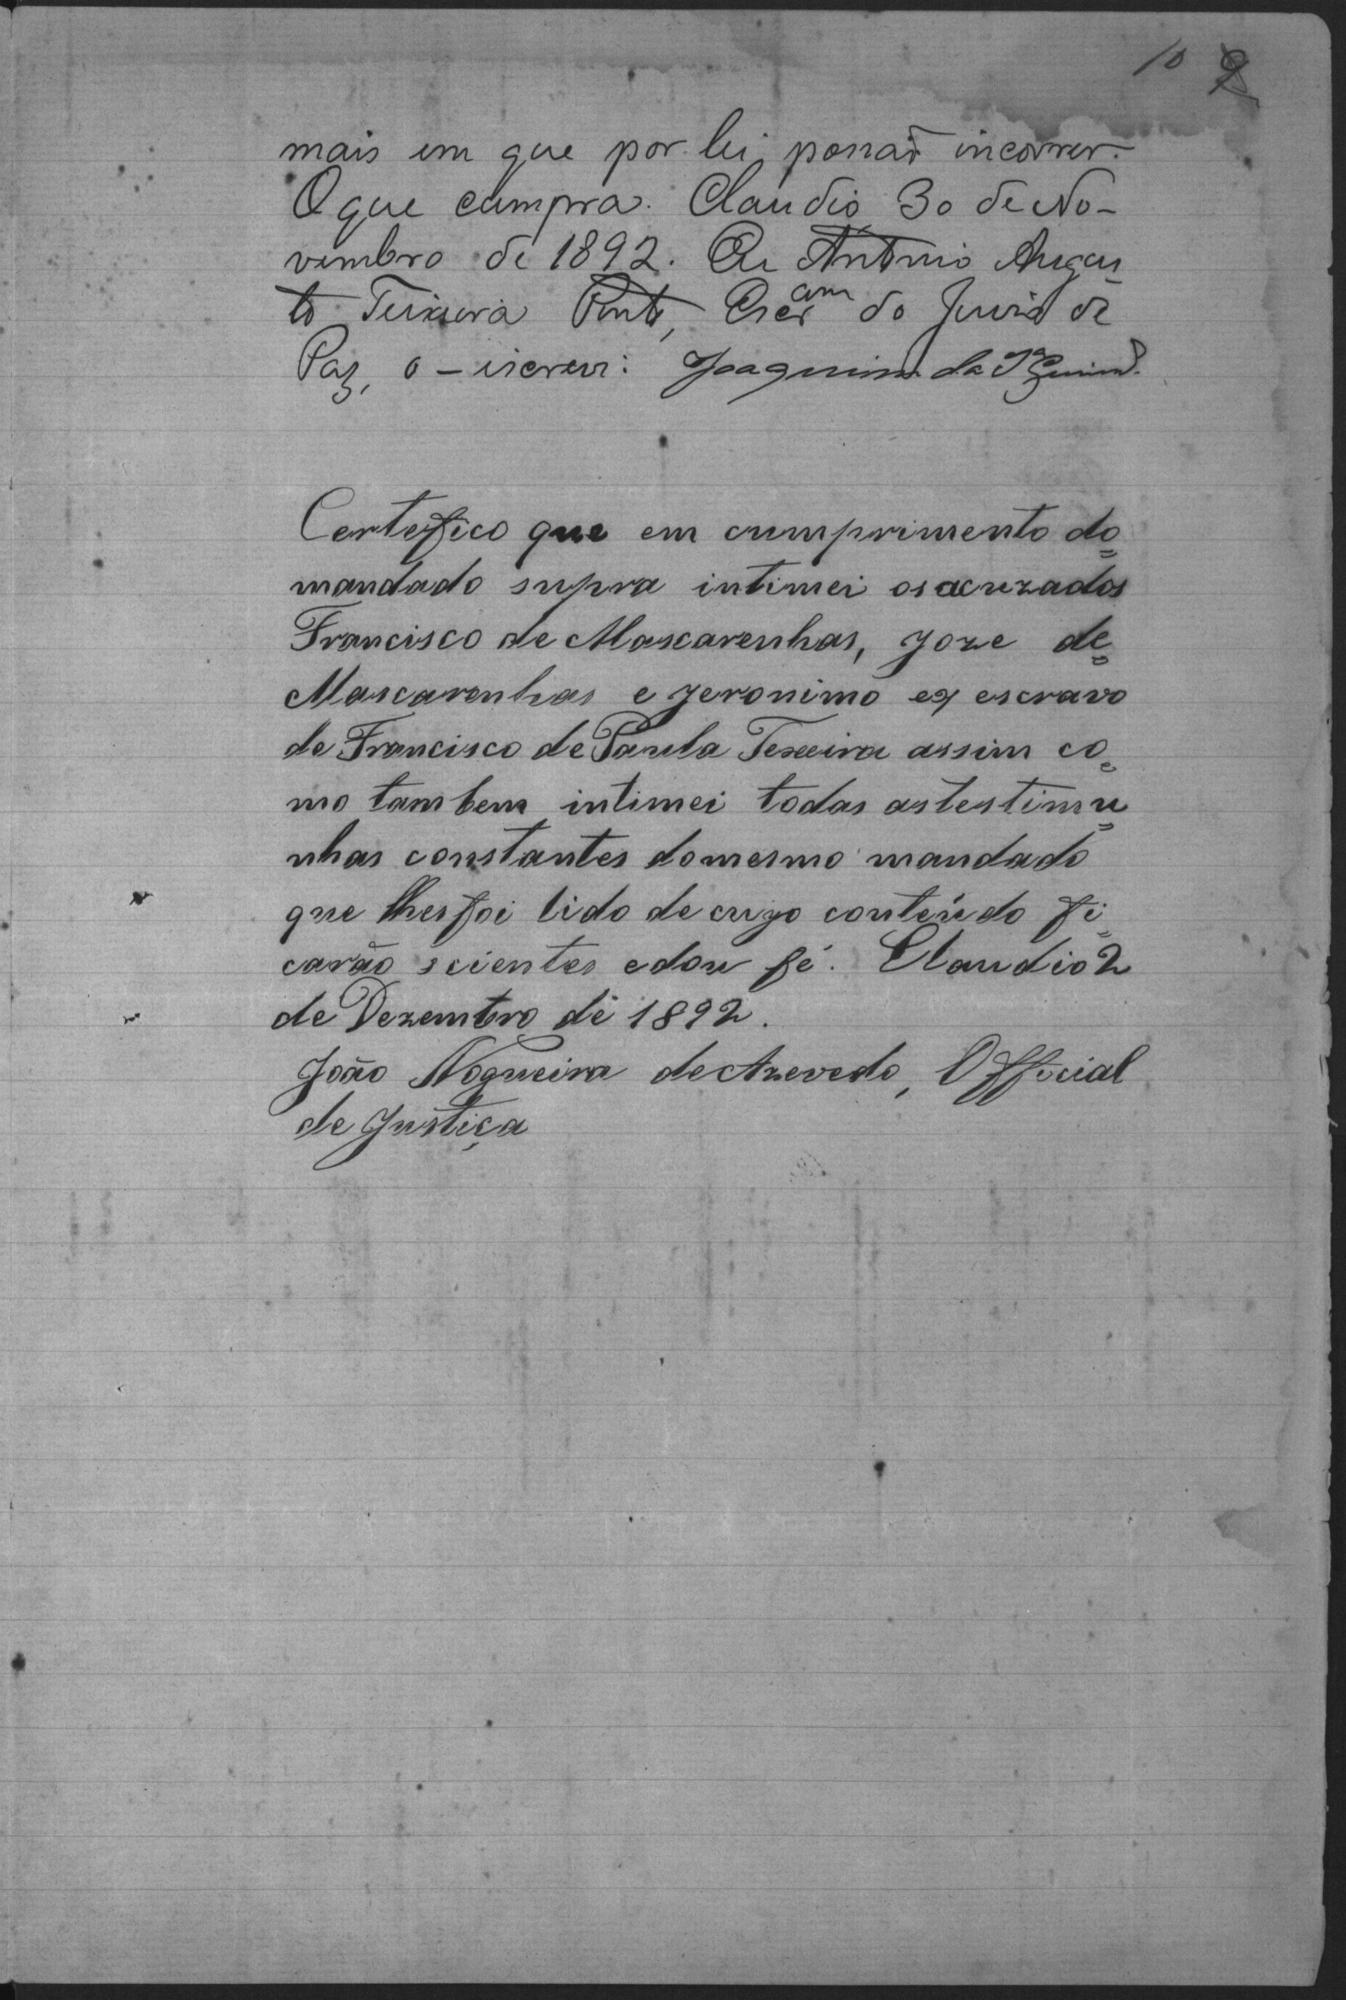 10 9
mais em que por lei possaõ incorrer.
O que cumpra. Claudio 30 de No-
vembro de 1892. Eu Antonio Augus
to Teixeira Pinto, Escram do Juizo de
Paz, o-escrevi: Joaquim da
Certefico que em cumprimento do
mandado supra intimei os acuzados
Francisco de Mascarenhas, Joze de
Mascarenhas e Jeronimo ex escravo
de Francisco de Paula Texeira assim co=
mo tambem intimei todas as testimu=
nhas constantes do mesmo mandado
que lhes foi lido de cujo conteúdo fi=
carão scientes e dou fé. Claudio 2
de Dezembro de 1892.
João Nogueira de Azevedo, Official
de Justiça